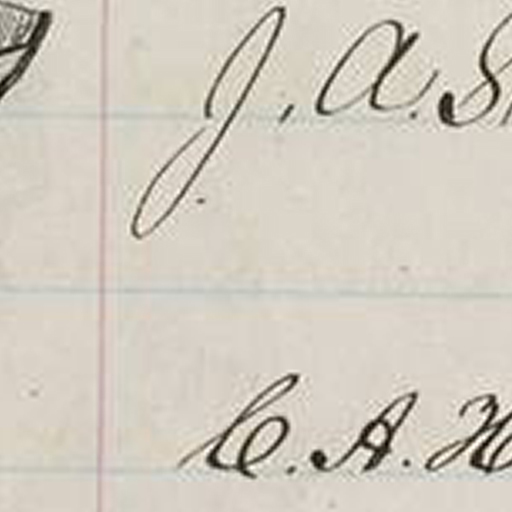 J. A. S
C. A. H